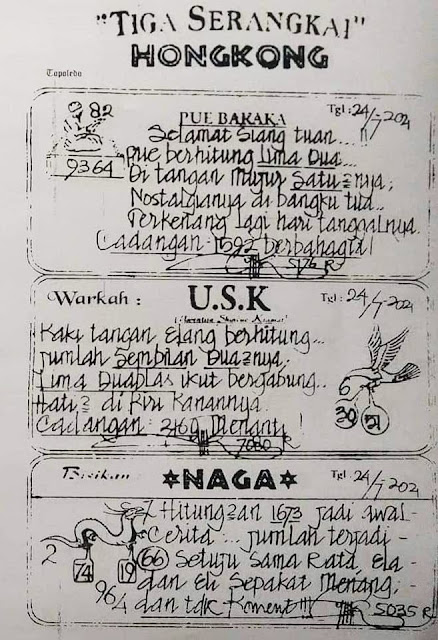 "TIGA SERANGKAI"
HONGKONG
Topoledo
82
9364
PUE BARAKA
Tgl : 24/7 202
Selamat Siang tuan...
Pue berhitung Lima Dua...
Di tangan Mujur Satu 2 nya,
Nostalgianya di bangku tua...
Terkenang lagi hari tanggalnya.
Cadangan 1592 berbahagia!
5176 R
Warkah :
U.S.K
Tgl : 24/7 202
Kaki tangan Elang berhitung...
Jumlah Sembilan Dua2nya,
Lima Duaplas ikut bergabung..
Hati2 di Kiri Kanannya.
Cadangan : 2169 Menanti!
7080 R
6
30
21
Bisikan
NAGA
Tgl : 24/7 202
7 Hitung2an 1673 jadi awal-
Cerita... jumlah terjadi -
66 Setuju Sama Rata, Ela -
dan Eli Sepakat Menang, -
dan tdk Koment!!!
5035 R
2
74
19
964